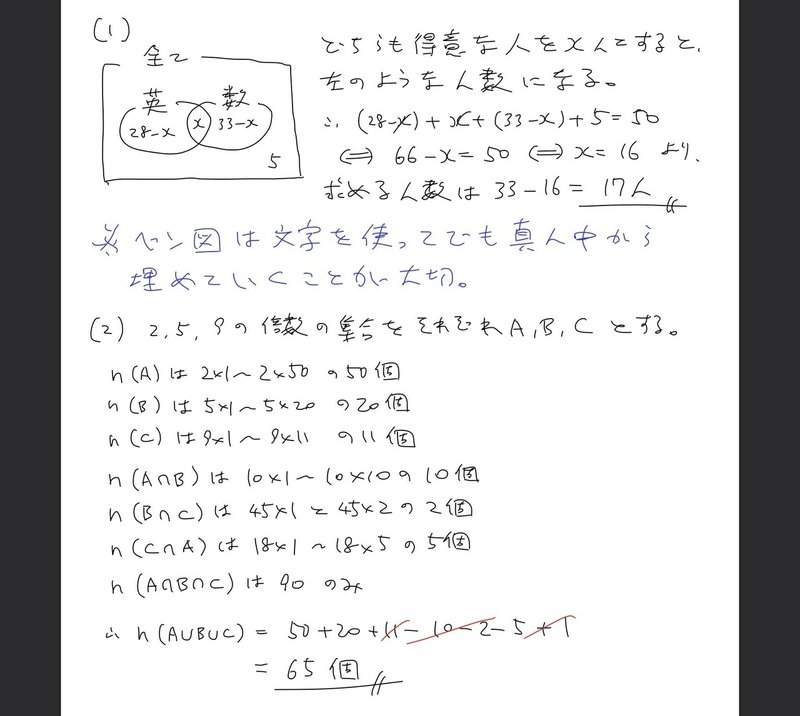 (1)
全て
英 数
28-x x 33-x
5
どちらも得意な人をx人とすると、
左のような人数になる。
∴ (28-x)+x+(33-x)+5=50
⇔ 66-x=50 ⇔ x=16 より、
求める人数は 33-16= 17人
※ベン図は文字を使ってでも真ん中から
埋めていくことが大切。
(2) 2,5,9の倍数の集合をそれぞれA,B,Cとする。
n(A)は 2×1~2×50 の50個
n(B)は 5×1~5×20 の20個
n(C)は9×1~9×11 の11個
n(A∩B)は 10×1~10×10の10個
n(B∩C)は 45×1と45×2の2個
n(C∩A)は 18×1~18×5の5個
n(A∩B∩C)は90 のみ
∴ n(A∪B∪C) = 50+20+11-10-2-5+1
= 65個